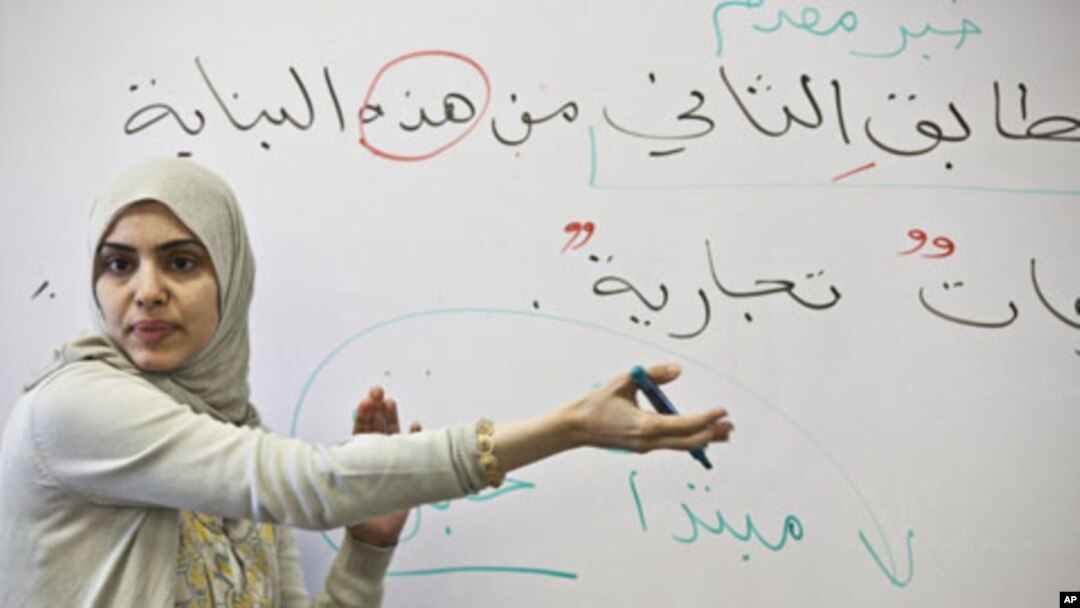 خبر مقدم
طابقِ الثاني من هذه البناية
" تجارية " .
مبتدا
AP